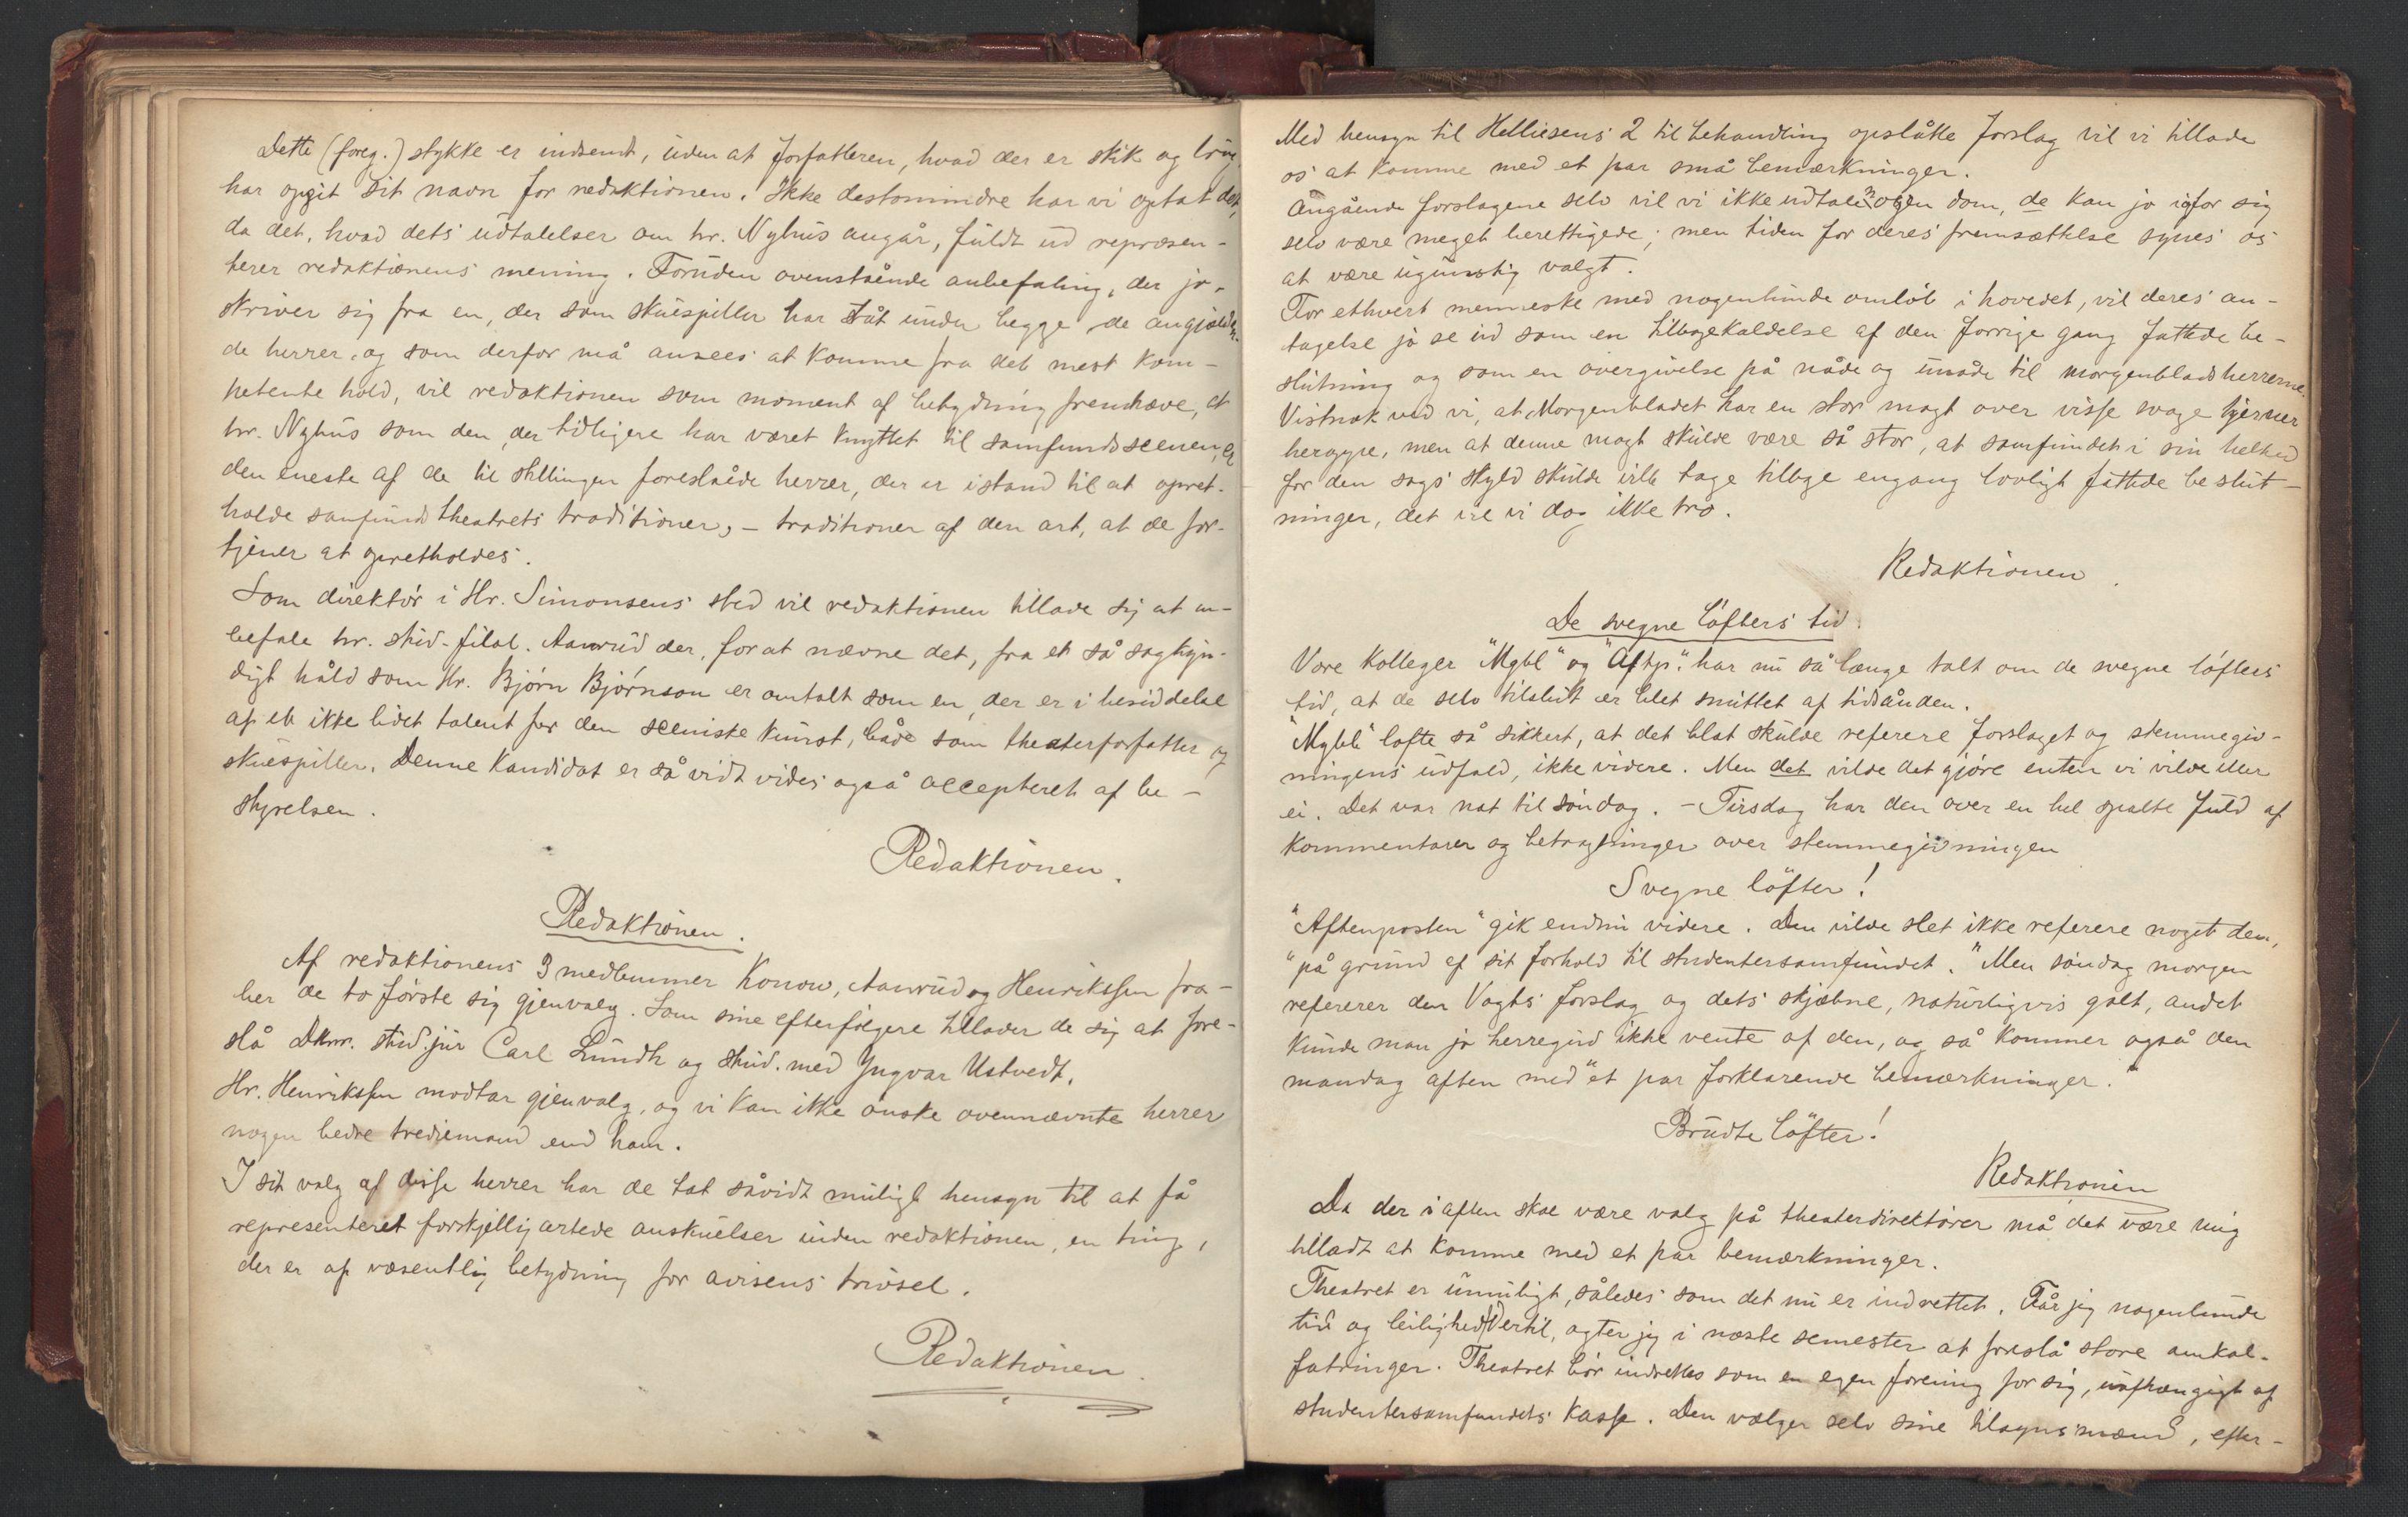 Dette (foreg.) stykke er indsendt, uden at forfatteren, hvad der er skik og brug,
har opgit sit navn for redaktionen. Ikke destomindre har vi optat det,
da det, hvad dets udtalelser om hr. Nyhus angår, fuldt ud repræsen-
terer redaktionens mening. Foruden ovenstående anbefaling, der jo
skriver sig fra en, der som skuespiller har ståt under begge de angjælden-
de herrer, og som derfor må ansees at komme fra det mest kom-
petente hold, vil redaktionen som moment af betydning fremhæve, at
hr. Nyhus som den, der tidligere har været knyttet til samfundsscenen, er
den eneste af de til stillingen foreslåede herrer, der er istand til at opret-
holde samfundstheatrets traditioner, – traditioner af den art, at de for-
tjener at opretholdes.
Som direktør i Hr. Simonsens sted vil redaktionen tillade sig at an-
befale hr. stud. filol. Aanrud der, for at nævne det, fra et så sagkyn-
digt håld som Hr. Bjørn Bjørnson er omtalt som en, der er i besiddelse
af et ikke lidet talent for den sceniske kunst, både som theaterforfatter og
skuespiller. Denne kandidat er så vidt vides også accepteret af be-
styrelsen.
Redaktionen.
Redaktionen.
Af redaktionens 3 medlemmer Konow, Aanrud og Henrikssen fra-
ber de to første sig gjenvalg. Som sine efterfølgere tillader de sig at fore-
slå Dhrr. stud. jur Carl Lundh og stud. med Yngvar Ustvedt.
Hr. Henrikssen modtar gjenvalg, og vi kan ikke ønske ovennævnte herrer
nogen bedre trediemand end ham.
I sit valg af disse herrer har de tat såvidt muligt hensyn til at få
representeret forskjellig artede anskuelser inden redaktionen, en ting,
der er af væsentlig betydning for avisens trivsel.
Redaktionen.
Med hensyn til Helliesens 2 til behandling opslåtte forslag vil vi tillade
os at komme med et par små bemærkninger.
Angående forslagene selv vil vi ikke udtale nogen dom, de kan jo i og for sig
selv være meget berettigede; men tiden for deres fremsættelse synes os
at være ugunstig valgt.
For ethvert menneske med nogenlunde omløb i hovedet, vil deres an-
tagelse jo se ud som en tilbagekaldelse af den forrige gang fattede be-
slutning og som en overgivelse på nåde og unåde til morgenbladsherrerne.
Vistnok ved vi, at Morgenbladet har en stor magt over visse svage hjerner
heroppe, men at denne magt skulde være så stor, at samfundet i sin helhed
for den sags skyld skulde ville tage tilbage engang lovligt fattede beslut-
ninger, det vil vi dog ikke tro.
Redaktionen.
De svegne løfters tid.
Vore kolleger "Mgbl" og "Aftp". har nu så længe talt om de svegne løfters
tid, at de selv tilslut er blet smittet af tidsånden.
"Mgbl" lofte så sikkert, at det blot skulde referere forslaget og stemmegiv-
ningens udfald, ikke videre. Men det vilde det gjøre enten vi vilde eller
ei. Det var nat til søndag. – Tirsdag har den over en hel spalte fuld af
kommentarer og betragtninger over stemmegivningen
Svegne løfter!
"Aftenposten" gik endnu videre. Den vilde slet ikke referere noget den,
"på grund af sit forhold til studentersamfundet." Men søndag morgen
refererer den Vogts forslag og dets skjæbne, naturligvis galt, andet
kunde man jo herregud ikke vente af den, og så kommer også den
mandag aften med "et par forklarende bemærkninger."
Brudte løfter!
Redaktionen
Da der i aften skal være valg på theaterdirektører må det være mig
tilladt at komme med et par bemærkninger.
Theatret er umuligt, således som det nu er indrettet. Får jeg nogenlunde
tid og leilighed dertil, agter jeg i næste semester at foreslå store omkal-
fatringer. Theatret bør indrettes som en egen forening for sig, uafhængigt af
studentersamfundets kasse. Den vælger selv sine tilsynsmænd, efter-